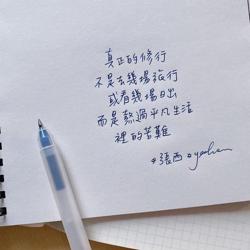 真正的修行
不是去幾場旅行
或看幾場日出
而是熬過平凡生活
裡的苦難
#張西